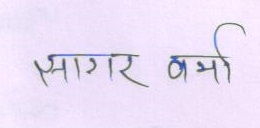 सागर वर्मा